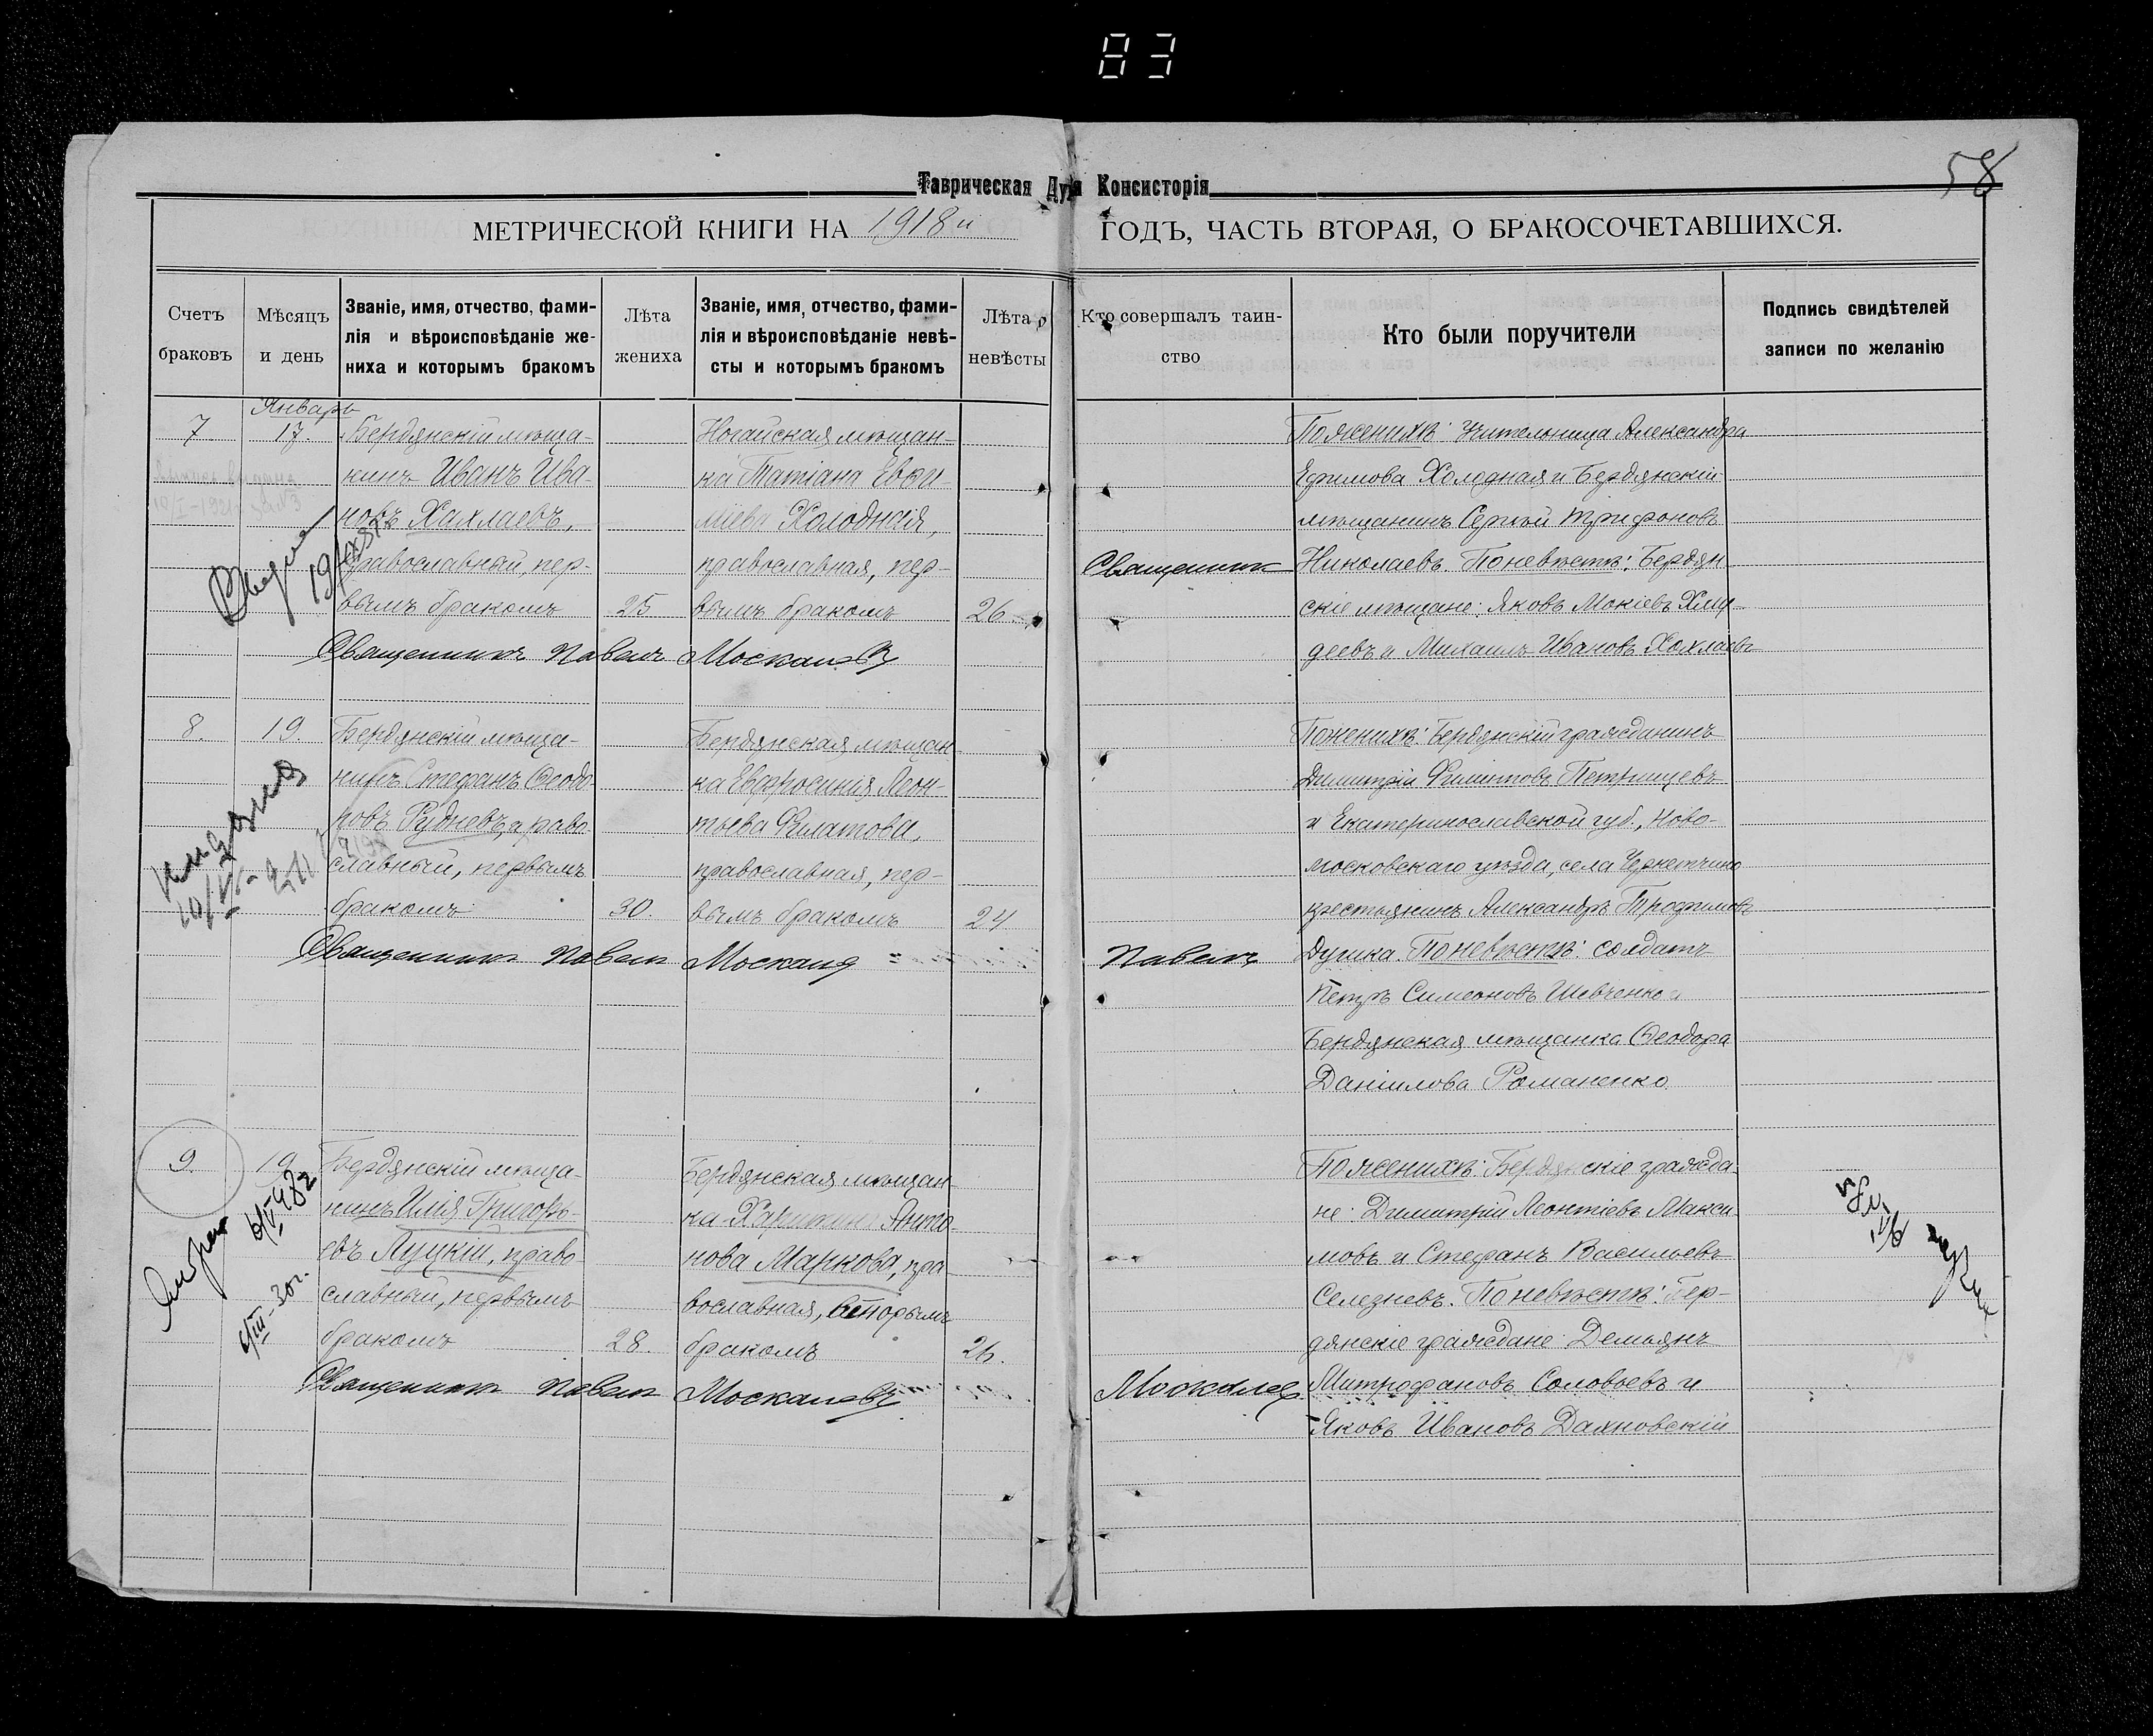 83
58
Таврическая Дух Консисторія
МЕТРИЧЕСКОЙ КНИГИ НА 1918й ГОДЪ, ЧАСТЬ ВТОРАЯ, О БРАКОСОЧЕТАВШИХСЯ.
Счетъ браковъ
Мѣсяцъ и день
Званіе, имя, отчество, фами-
лія и вѣроисповѣданіе же-
ниха и которымъ бракомъ
Лѣта жениха
Званіе, имя, отчество, фами-
лія и вѣроисповѣданіе невѣ-
сты и которымъ бракомъ
Лѣта невѣсты
Кто совершалъ таин-
ство
Кто были поручители
Подпись свидѣтелей
записи по желанію
Январь
7
17.
Бердянскій мѣща-
нинъ Иванъ Ива-
новъ Хахлаевъ,
православный, пер-
вымъ бракомъ
25
Ногайская мѣщан-
ка Татіана Евѳи-
міева Холодная,
православная, пер-
вымъ бракомъ
26
Священникъ Павелъ Москалевъ
Священникъ
По женихѣ: Учительница Александра
Ефимова Холодная и Бердянскій
мѣщанинъ Сергѣй Трифоновъ
Николаевъ. По невѣстѣ: Бердян
скіе мѣщане: Яковъ Мокіевъ
деевъ и Михаилъ Ивановъ Хохлаевъ
8.
19.
Бердянскій мѣща-
нинъ Стефанъ Ѳеодо-
ровъ Рудневъ, право
славный, первымъ
бракомъ
30.
Бердянская мѣщан
ка Евфросинія Леон-
тьева Филатова,
православная, пер-
вымъ бракомъ
24
Священникъ Павелъ
Павелъ
По женихѣ: Бердянскій гражданинъ
Димитрій Филипповъ Петрищевъ
и Екатеринославской губ., Ново-
московскаго уѣзда, села
крестьянинъ Александръ Трофимовъ
По невѣстѣ: солдатъ
Петръ Симеоновъ Шевченко и
Бердянская мѣщанка Ѳеодора
Даніилова Романенко
9.
19
Бердянскій мѣща-
нинъ Илія Григорь-
евъ Луцкій, право
славный, первымъ
бракомъ
28.
Бердянская мѣщан-
нова Маркова, пра
вославная, вторымъ
бракомъ
26.
Священникъ Павелъ Москалевъ
Москалев
По женихѣ: Бердянскіе гражда-
не: Димитрій Леонтіевъ Макси-
мовъ и Стефанъ Васильевъ
Селезневъ. По невѣстѣ: Бер-
дянскіе граждане: Демьянъ
Митрофановъ Соловьевъ и
Яковъ Ивановъ